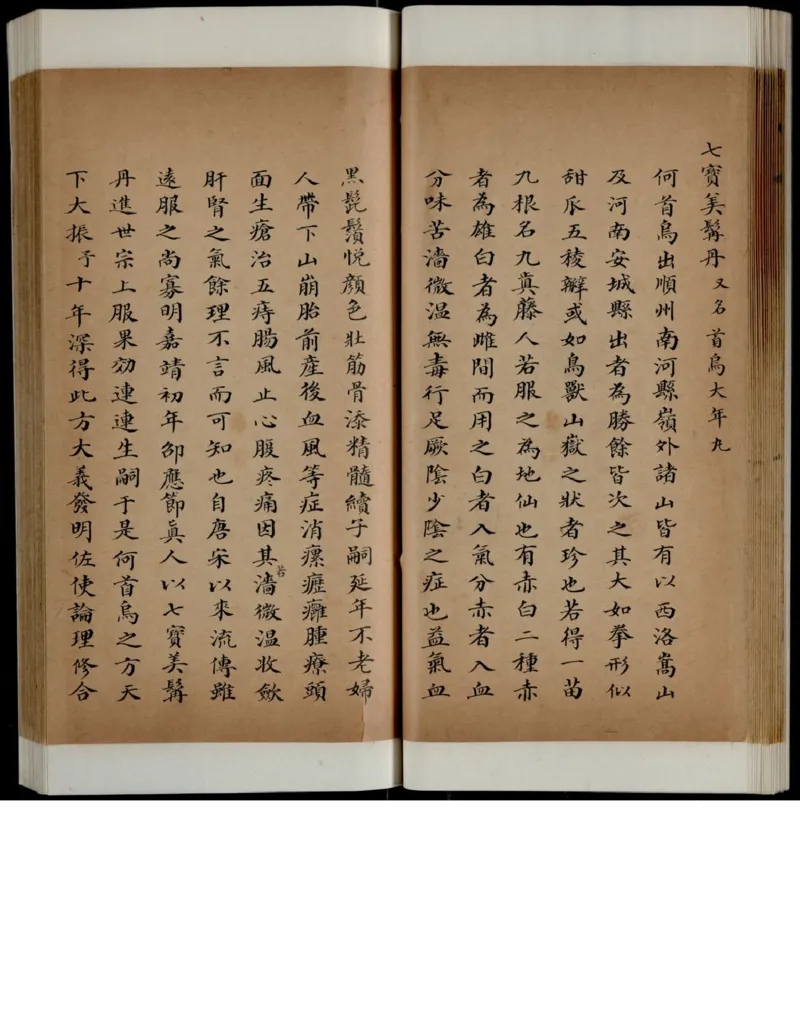 七寶美髯丹又名首烏大年丸
何首烏出順州南河縣嶺外諸山皆有以西洛嵩山
及河南安城縣出者為勝餘皆次之其大如拳形似
甜瓜五稜瓣或如鳥獸山嶽之狀者珍也若得一苗
九根名九真藤人若服之為地仙也有赤白二種赤
者為雄白者為雌間而用之白者入氣分赤者入血
分味苦濇微温無毒行足厥陰少陰之症也益氣血
黑髭鬚悦顔色壯筋骨添精髓續子嗣延年不老婦
人帶下山崩胎前產後血風等症消瘰癧癰腫療頭
面生瘡治五痔腸風止心腹疼痛因其苦濇微温收斂
肝腎之氣餘理不言而可知也自唐宋以來流傳雖
遠服之尚寡明嘉靖初年邵應節真人以七寶美髯
丹進世宗上服果効連連生嗣于是何首烏之方天
下大振予十年深得此方大義發明佐使論理修合